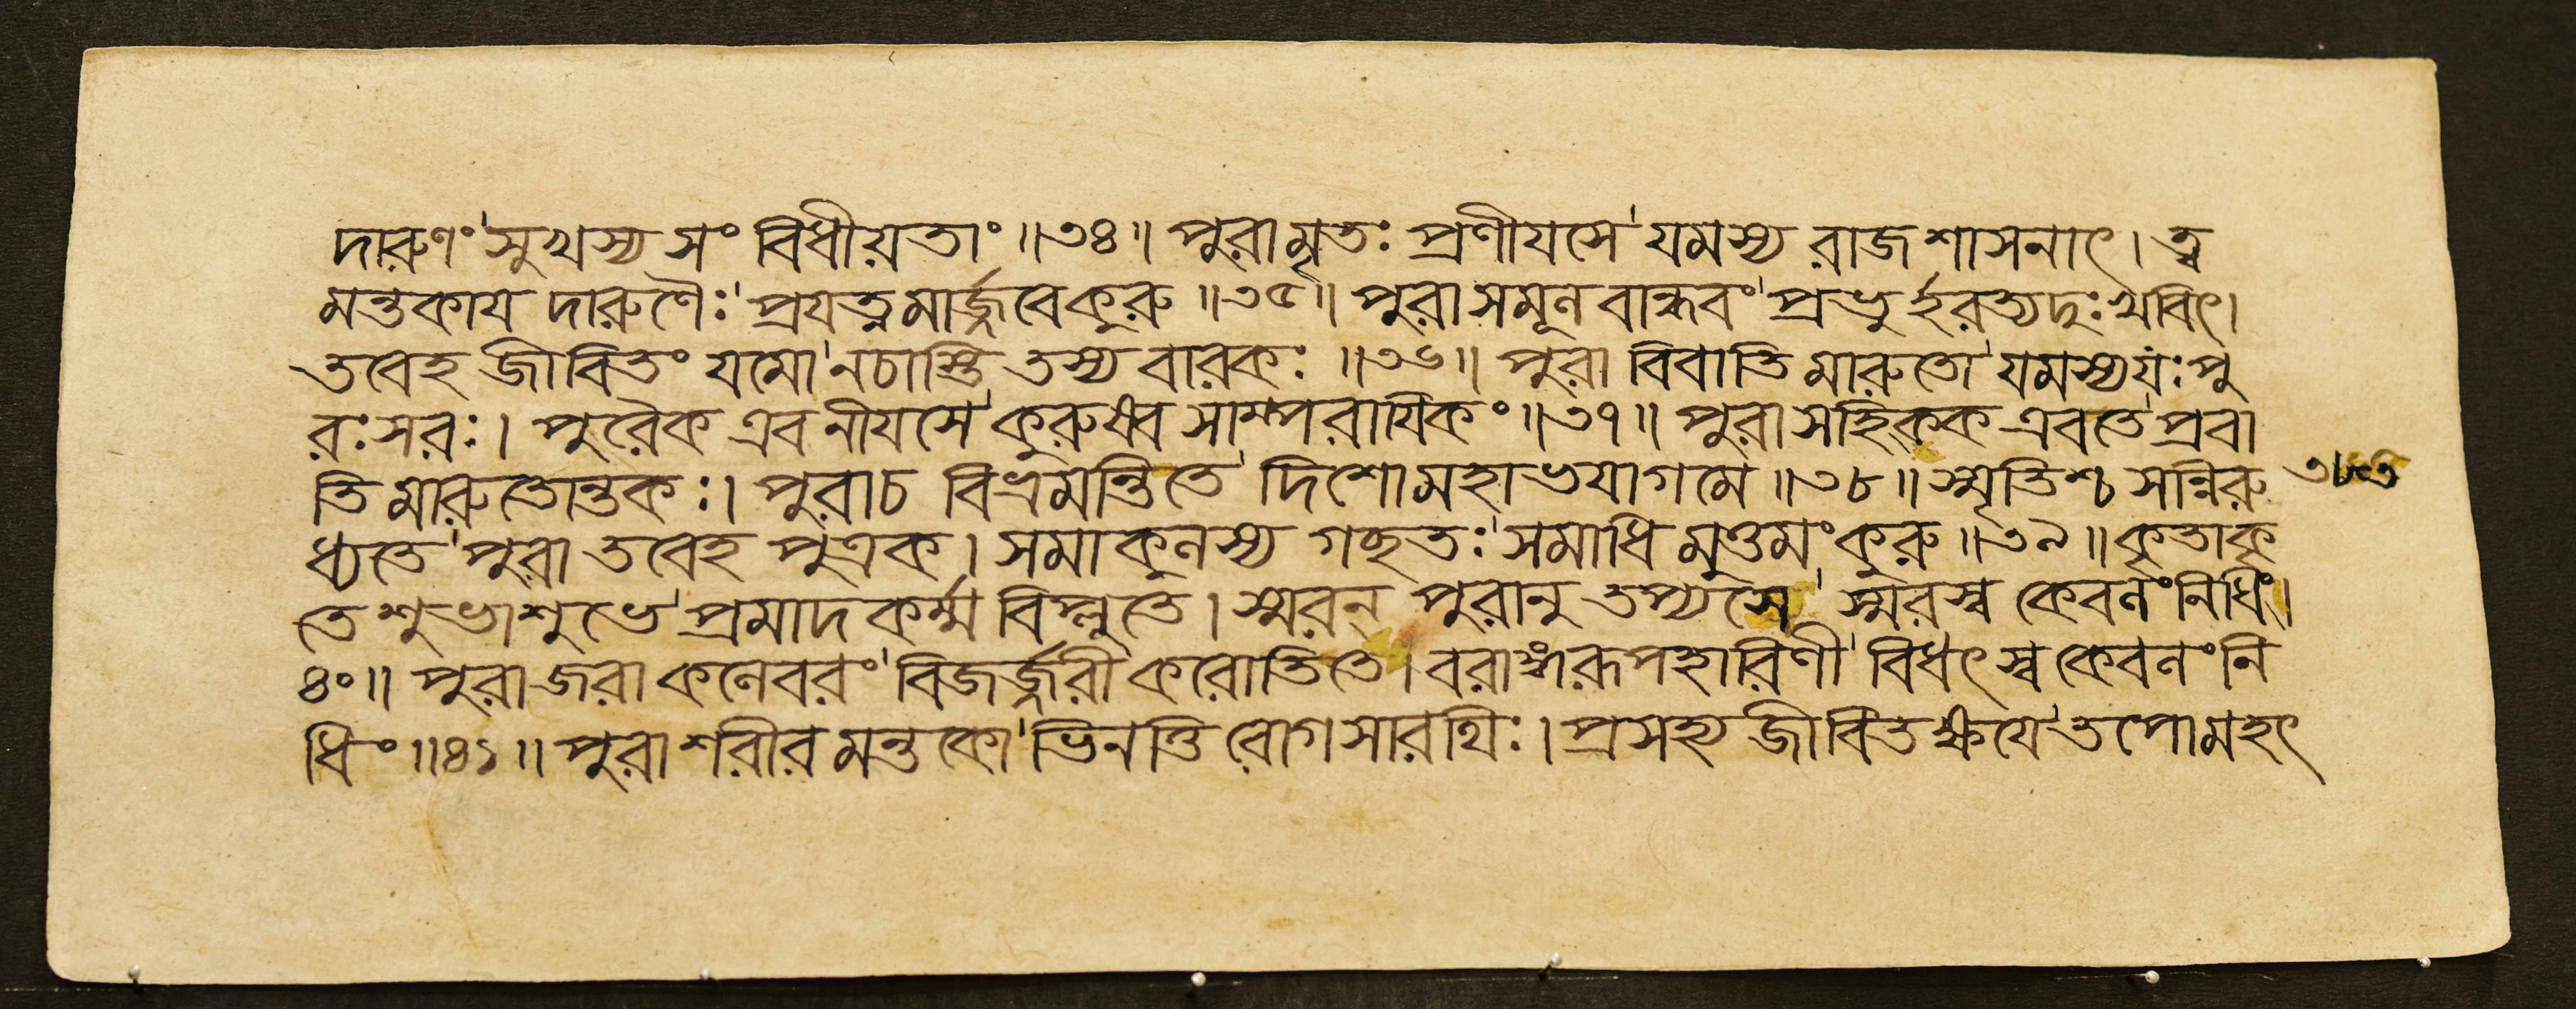 দারুণং সুখস্য সং বিধীয়তাং ॥৩৪॥ পুরামৃতঃ প্রণীযসে যমস্য রাজশাসনাৎ। ত্ব
মন্তকায দারুণৈঃ প্রযত্নমার্জ্জবেকুরু ॥৩৫॥ পুরাসমূলবান্ধবং প্রভুর্হরত্যদুঃখবিৎ।
তবেহ জীবিতং যমো নচাস্তি তস্য বারকঃ ॥৩৬॥ পুরা বিবাতি মারুতো যমস্যযঃ পু
রঃসরঃ। পুরৈক এবনীযসে কুরুষ্ব সাম্পরাযিকং ॥৩৭॥ পুরাসহিক্ক এবতে প্রবা
তি মারুতোন্তকঃ। পুরাচ বিভ্রমন্তিতে দিশোমহাভযাগমে ॥৩৮॥ স্মৃতিশ্চ সন্নিরু ৩৮৩
ধ্যতে পুরা তবেহ পুত্রক। সমাকুলস্য গচ্ছতঃ সমাধি মুত্তমং কুরু ॥৩৯॥ কৃতাকৃ
তে শুভাশুভে প্রমাদকর্ম্ম বিপ্লুতে। স্মরন্ পুরানু তপ্যসে স্মরস্ব কেবলং নিধিং।
৪০॥ পুরা জরা কলেবরং বিজর্জ্জরী করোতিতে। বরাঙ্গরূপহারিণী বিধৎস্ব কেবলং নি
ধিং ॥৪১॥ পুরা শরীর মন্তকো ভিনত্তি রোগসারথিঃ। প্রসহ্য জীবিতক্ষযে তপোমহৎ